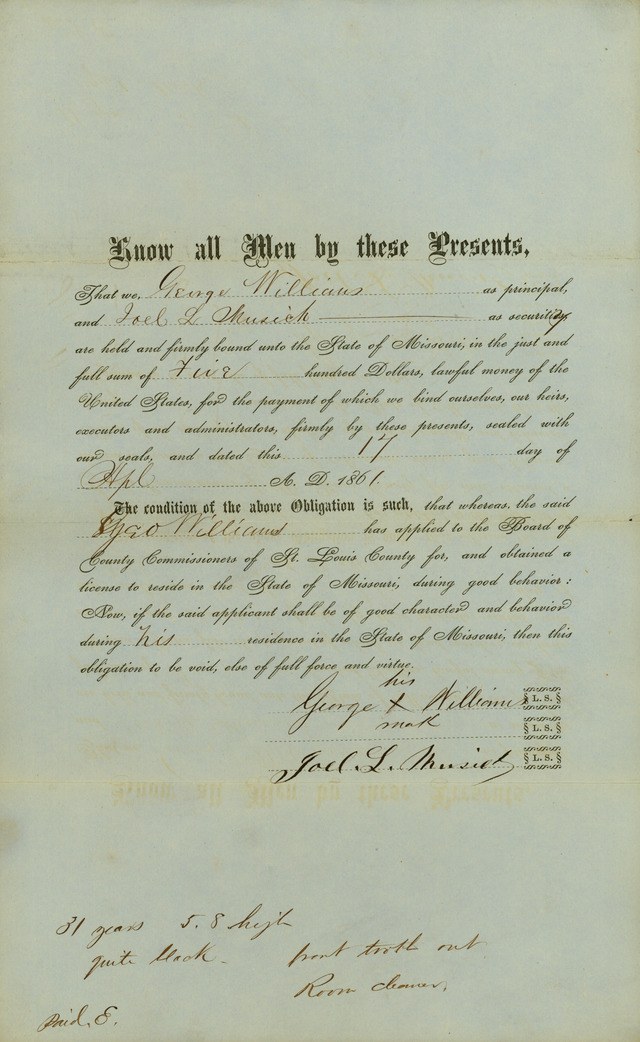 Know all Men by these Presents,
That we, George Williams as principal,
and Joel L Musick as security
are held and firmly bound unto the State of Missouri, in the just and
full sum of Five hundred Dollars, lawful money of the
United States, for the payment of which we bind ourselves, our heirs,
executors and administrators, firmly by these presents, sealed with
our seals, and dated this 17 day of
Apl A. D. 1861.
The condition of the above Obligation is such, that whereas, the said
Geo Williams has applied to the Board of
County Commissioners of St. Louis County for, and obtained a
license to reside in the State of Missouri, during good behavior:
Now, if the said applicant shall be of good character and behavior
during his residence in the State of Missouri, then this
obligation to be void, else of full force and virtue.
his
George X Williams L. S.
mark L. S.
Joel. L. Musick L. S.
31 years 5. 8 high
quite black - front tooth out
Room cleaner,
Paid. E.